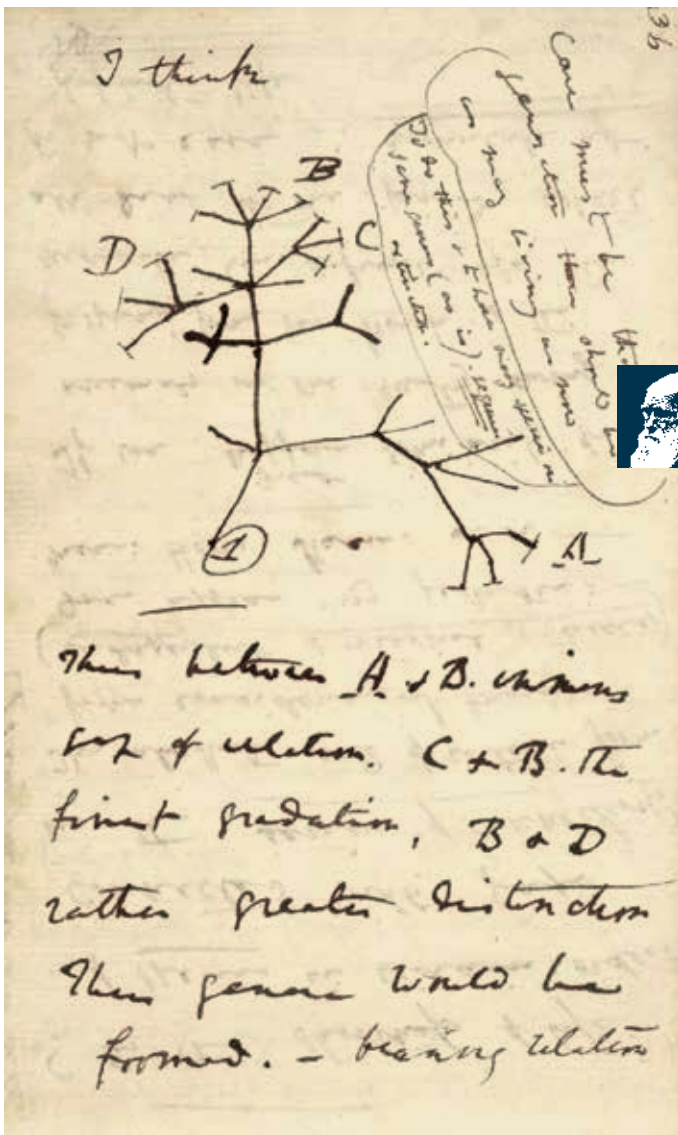 36
I think
Case must be that
generation then should be
as many living as now
To do this & to have many species in
same genus (as is). requires
extinction.
B
C
D
1
A
Thus between A & B. immens
gap of relation. C & B. The
finest gradation, B & D
rather greater distinction
Thus genera would be
formed. – bearing relation